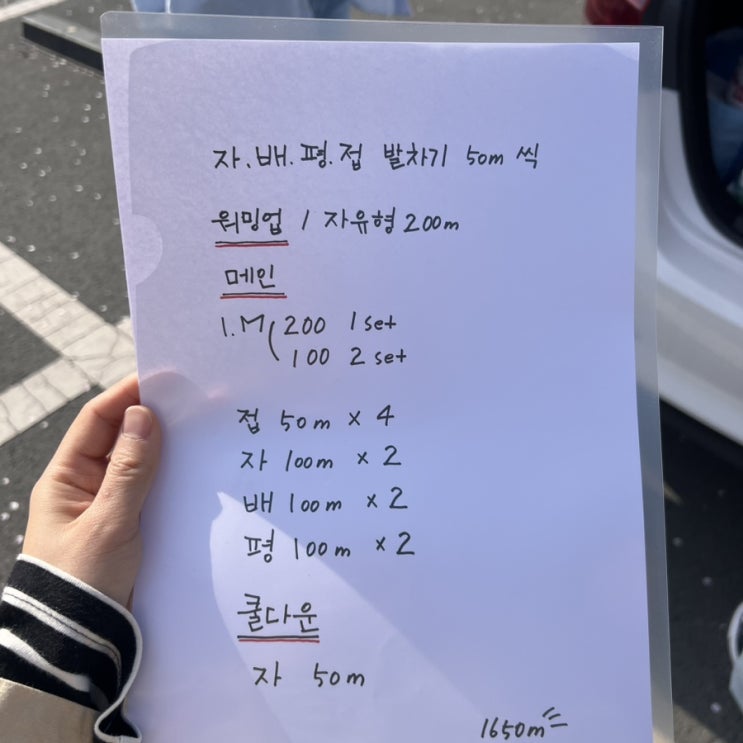 자.배.평.접 발차기 50m 씩
워밍업 / 자유형 200m
메인
I.M ( 200 1 set
100 2 set
접 50m x 4
자 100m x 2
배 100m x 2
평 100m x 2
쿨다운
자 50m
1650m